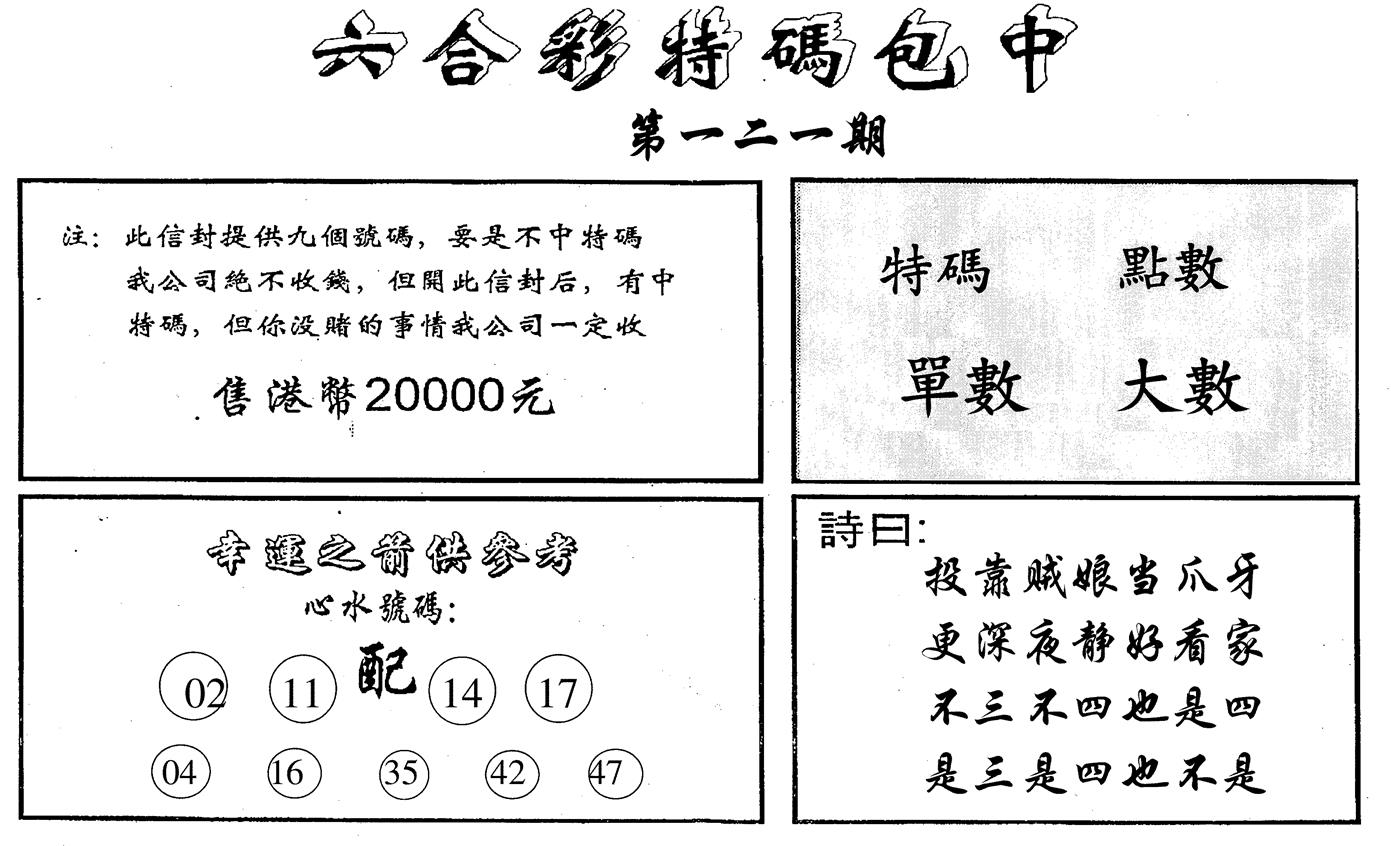 六合彩特碼包中
第一二一期
注：此信封提供九個號碼，要是不中特碼
我公司絶不收錢，但開此信封后，有中
特碼，但你没賭的事情我公司一定收
售港幣20000元
特碼 點數
單數 大數
幸運之箭供參考
心水號碼：
02 11 配 14 17
04 16 35 42 47
詩曰：
投靠贼娘当爪牙
更深夜静好看家
不三不四也是四
是三是四也不是